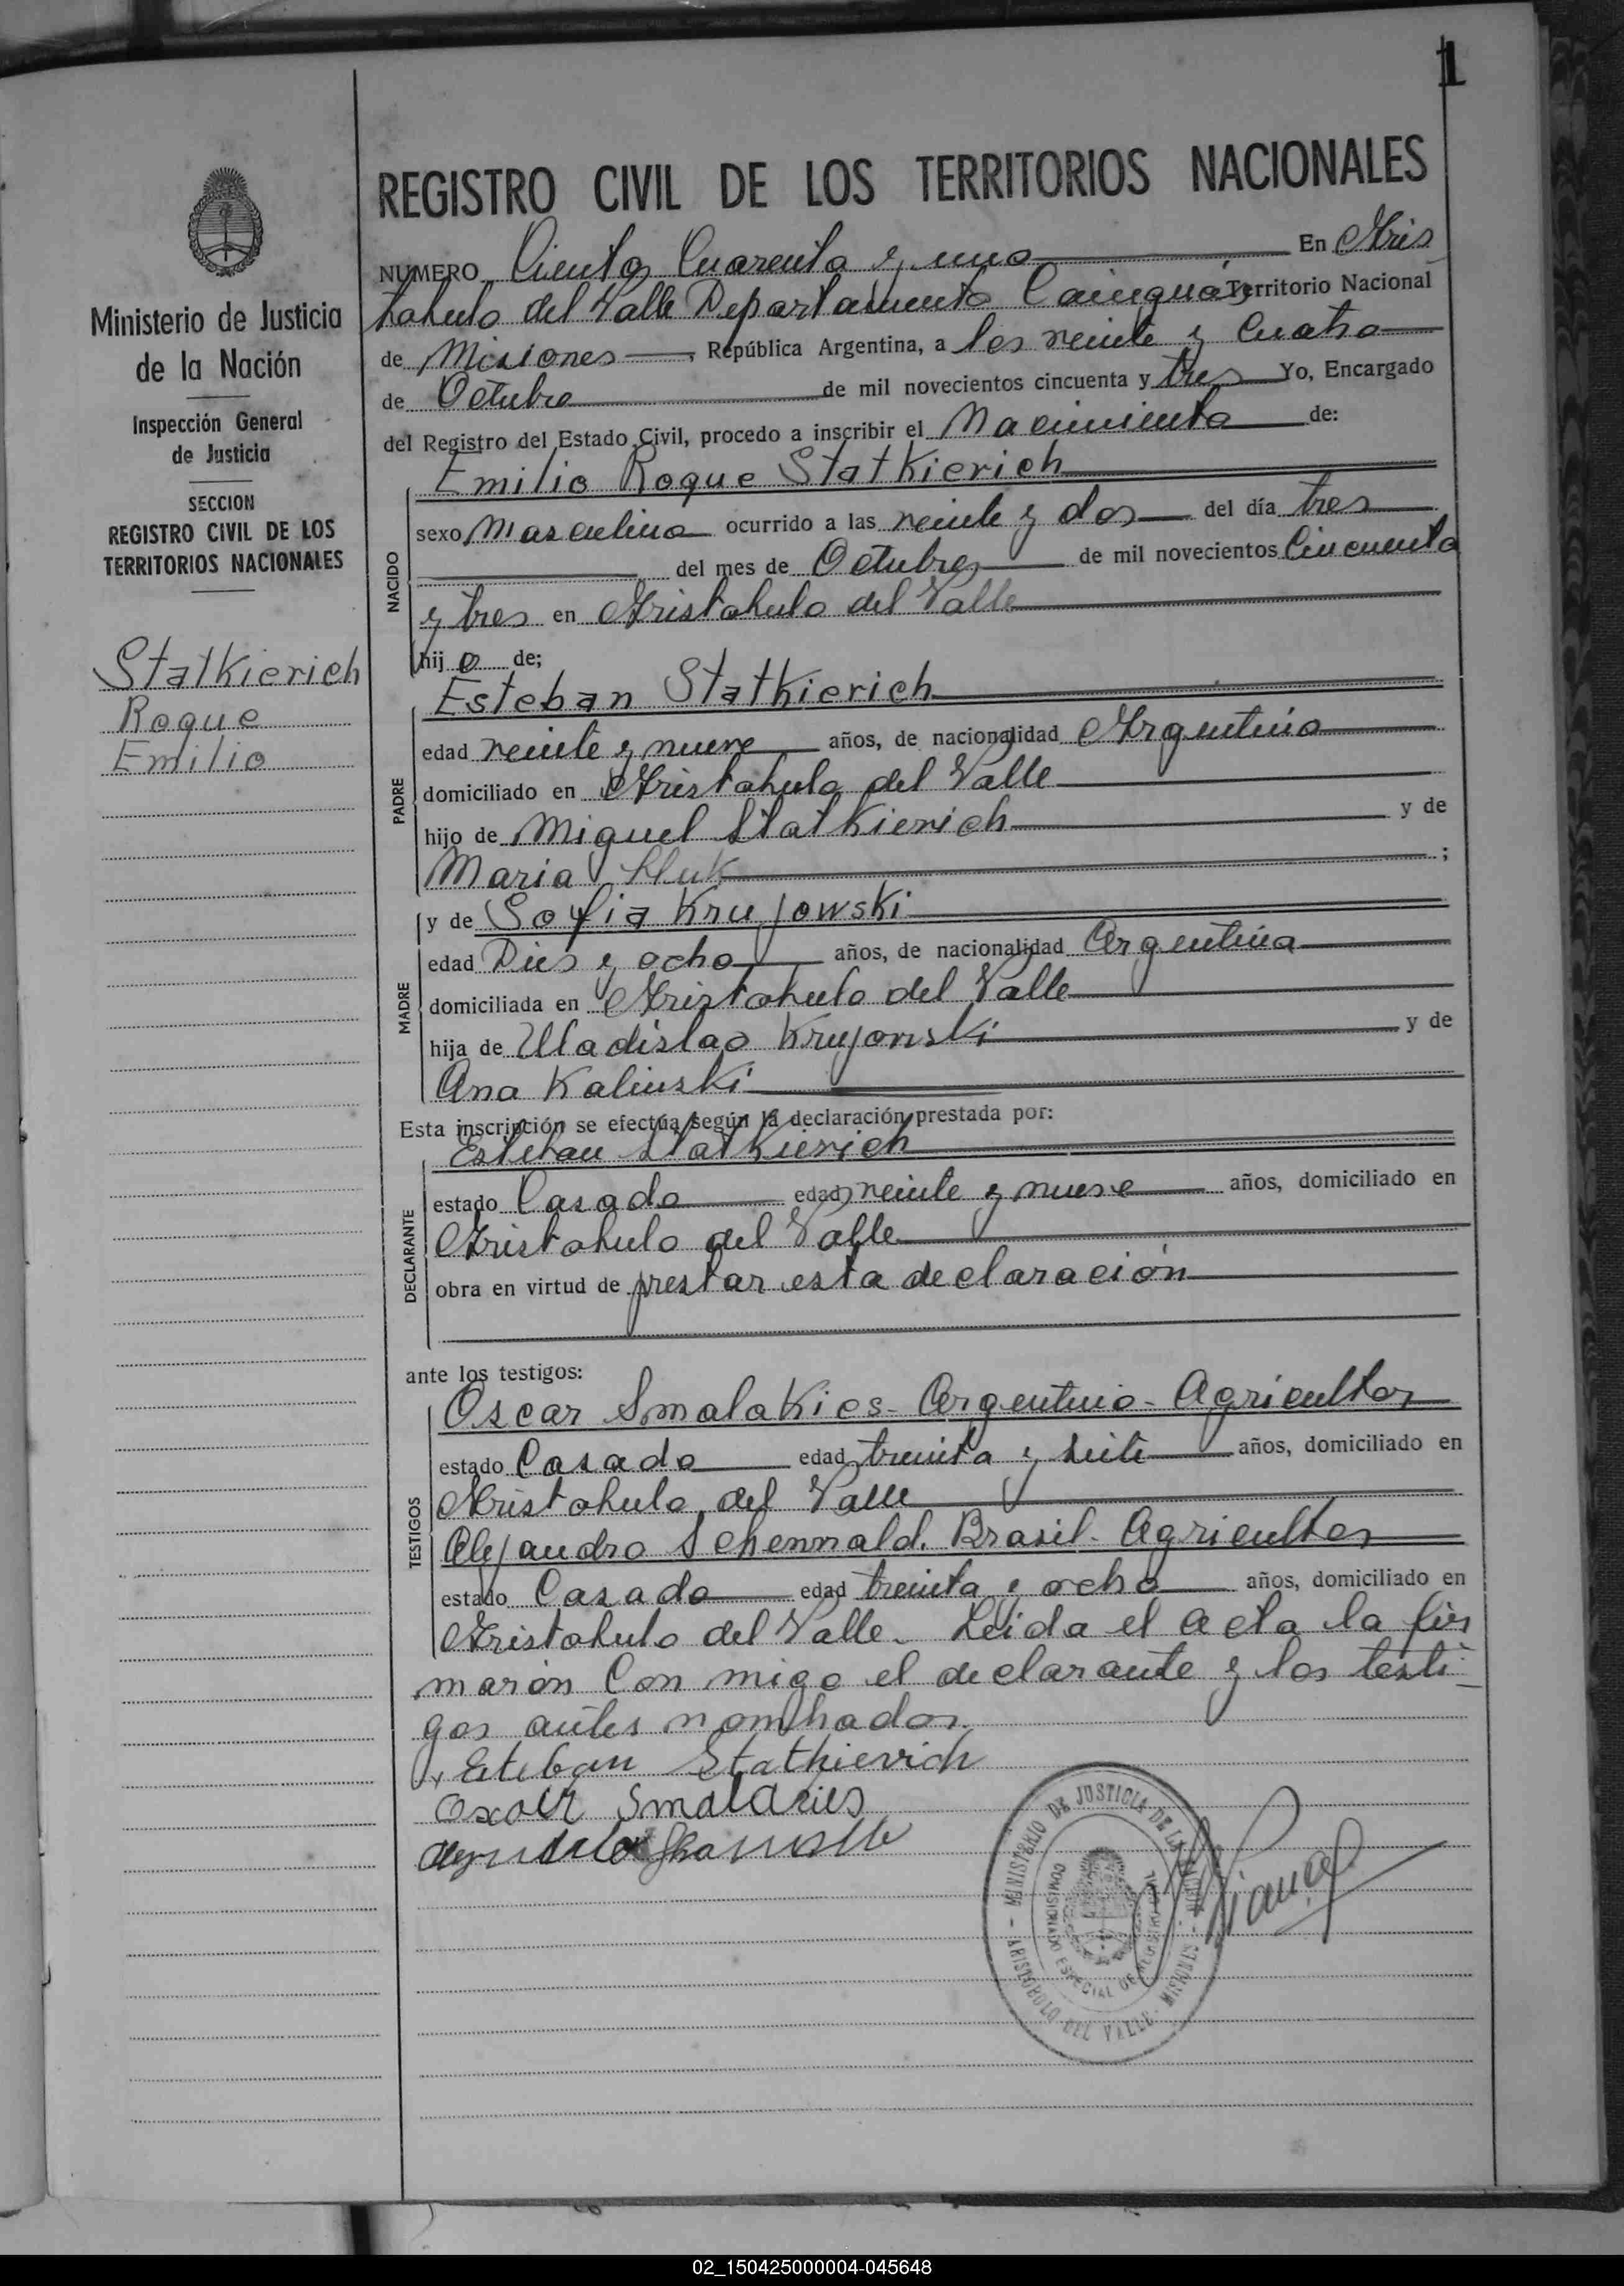 1
REGISTRO CIVIL DE LOS TERRITORIOS NACIONALES
NUMERO Ciento Cuarenta y uno En Aris
tobulo del Valle Departamento Cainguás Territorio Nacional
de Misiones, República Argentina, a los veinte y Cuatro
de Octubre de mil novecientos cincuenta y tres Yo, Encargado
del Registro del Estado Civil, procedo a inscribir el Nacimiento de:
Ministerio de Justicia
de la Nación
Inspección General
de Justicia
SECCION
REGISTRO CIVIL DE LOS
TERRITORIOS NACIONALES
Statkierich
Roque
Emilio
NACIDO
Emilio Roque Statkierich
sexo Masculino ocurrido a las veinte y dos del día tres
del mes de Octubre de mil novecientos Cincuenta
y tres en Aristobulo del Valle
hijo de;
PADRE
Esteban Statkierich
edad veinte y nueve años, de nacionalidad Argentino
domiciliado en Aristobulo del Valle
hijo de Miguel Statkierich y de
Maria ;
MADRE
y de Sofia Krujowski
edad Dies y ocho años, de nacionalidad Argentina
domiciliada en Aristobulo del Valle
hija de Uladislao Krujowski y de
Ana Kalinski
Esta inscripción se efectúa según la declaración prestada por:
DECLARANTE
Esteban Statkierich
estado Casado edad veinte y nueve años, domiciliado en
Aristobulo del Valle
obra en virtud de prestar esta declaración
ante los testigos:
TESTIGOS
Oscar Smalakies - Argentino - Agricultor
estado Casado edad treinta y siete años, domiciliado en
Aristobulo del Valle
Alejandro Schenwald. Brasil - Agricultor
estado Casado edad treinta y ocho años, domiciliado en
Aristobulo del Valle. Leida el acta la fir
marón Con migo el declarante y los testi-
gos antes nombrados.
Esteban Statkievich
Smalakies
MINISTERIO DE JUSTICIA DE LA NACION
COMISIONADO ESPECIAL DE REGISTRO CIVIL
ARISTOBULO DEL VALLE - MISIONES
02_150425000004-045648